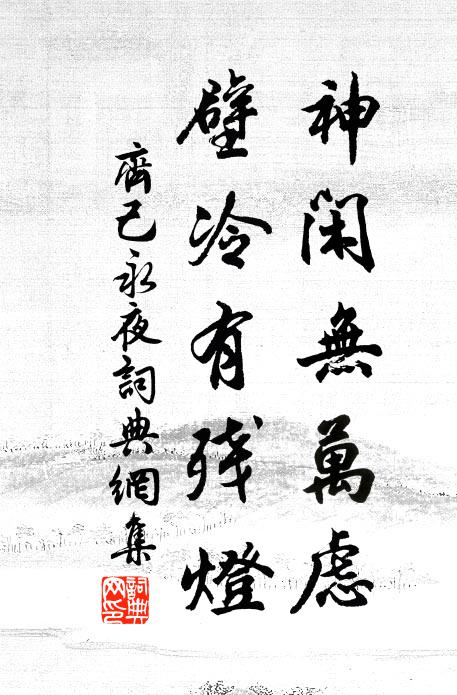 神閑無萬慮
壁冷有殘燈
齊己永夜詞典網集
詞典網印